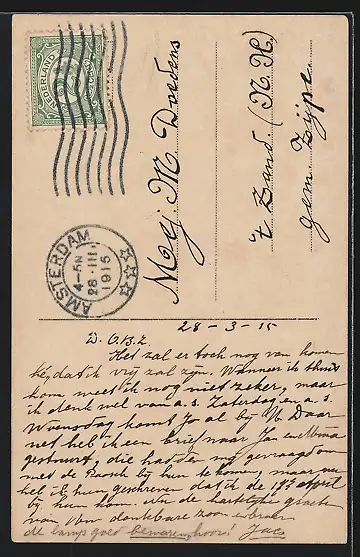 NEDERLAND
AMSTERDAM
4-5N
28·III
1915
Mej M Doedens
't Zand. (N.H.)
gem. Zijpe.
28-3-15
Het zal er toch nog van komen
hé, dat ik vrij zal zijn. Wanneer ik thuis
kom weet ik nog niet zeker, maar
ik denk wel van a.s. Zaterdag en a.s.
Woensdag komt Jo al bij N. Daar
net heb ik een brief naar Jan en
gestuurd, die hadden mij gevraagd om
met de Paasch bij hun te komen, maar nu
heb ik hun geschreven dat ik de 1ste april
bij hun kom. en de hartelijke groeten
van Uw dankbare zoon en broer
de lamp goed bewaren hoor! Jac.